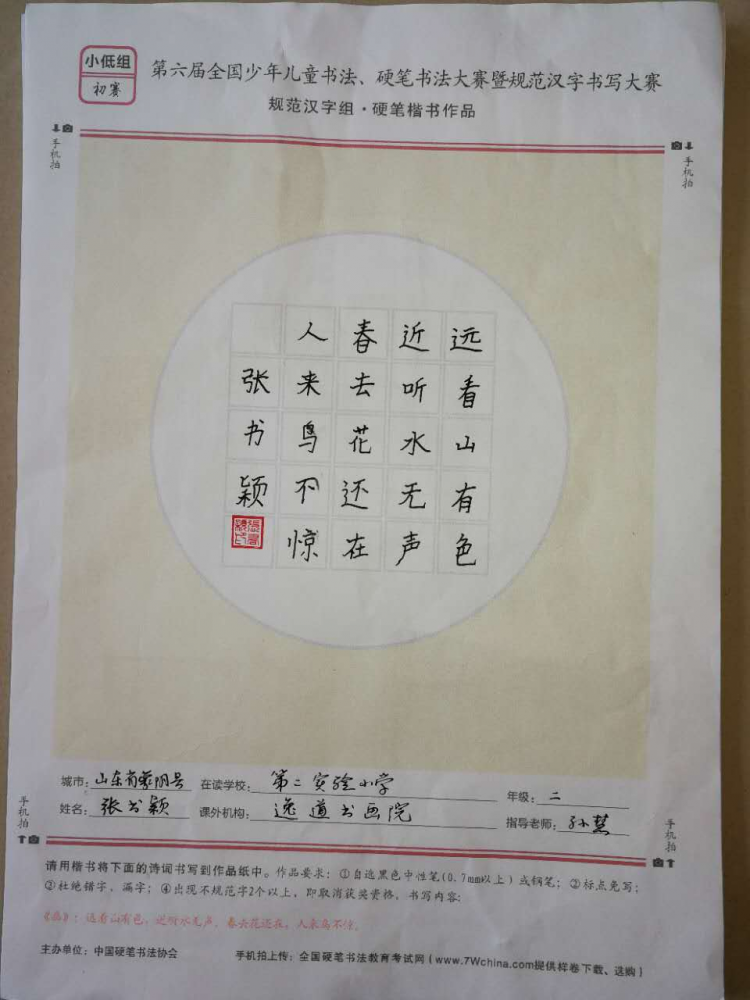 小低组
初赛
第六届全国少年儿童书法、硬笔书法大赛暨规范汉字书写大赛
规范汉字组·硬笔楷书作品
手机拍
手机拍
远看山有色
近听水无声
春去花还在
人来鸟不惊
张书颖
城市：山东省蒙阴县 在读学校：第二实验小学 年级：二
姓名：张书颖 课外机构：逸道书画院 指导老师：孙慧
手机拍
手机拍
请用楷书将下面的诗词书写到作品纸中。作品要求：①自选黑色中性笔(0.7mm以上)或钢笔；②标点免写；
③杜绝错字、漏字；④出现不规范字2个以上，即取消获奖资格，书写内容：
《画》：远看山有色，近听水无声。春去花还在，人来鸟不惊。
主办单位：中国硬笔书法协会 手机拍上传：全国硬笔书法教育考试网(www.7Wchina.com提供样卷下载、选购)